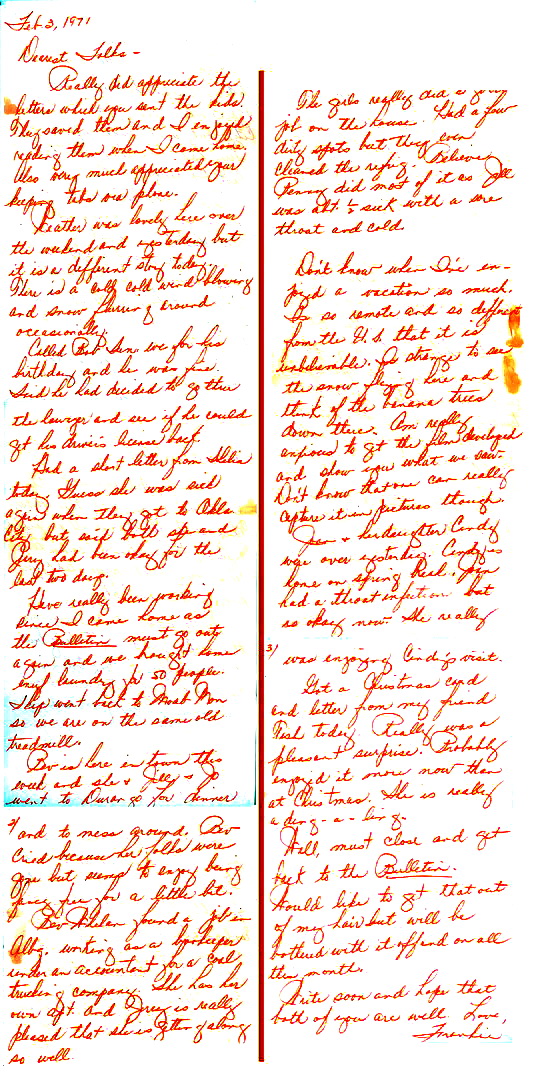 Feb 3, 1971
Dearest Folks -
Really did appreciate the
letters which you sent the kids.
They saved them and I enjoyed
reading them when I came home.
Also very much appreciated your
keeping tabs via phone.
Weather was lovely here over
the weekend and yesterday but
it is a different story today.
There is a cold, cold wind blowing
and snow flurring around
occasionally.
Called Bob Sun. we for his
birthday and he was fine.
Said he had decided to go thru
the lawyer and see if he could
get his driver's license back.
Had a short letter from
today. Guess she was sick
again when they got to Okla.
City but said both she and
Perry had been okay for the
last two days.
Have really been working
since I came home as
the Bulletin must go out
again and we brought home
enuf laundry for 50 people.
Skip went back to Moab Mon
so we are on the same old
treadmill.
Bev is here in town this
week and she & Jill & Jo
went to Durango for dinner
2/ and to mess around. Bev
cried because her folks were
gone but seems to enjoy being
fancy free for a little bit.
Bev found a job in
Albq. working as a bookeeper
under an accountant for a coal
trucking company. She has her
own apt. and is really
pleased that she is getting along
so well.
The girls really did a good
job on the house. Had a few
dirty spots but they even
cleaned the refrig. Believe
Penny did most of it as Jill
was abt. ½ sick with a sore
throat and cold.
Don't know when I've en-
joyed a vacation so much.
Is so remote and so different
from the U.S. that it is
unbelievable. Is strange to see
the snow flying here and
think of the banana trees
down there. Am really
anxious to get the film developed
and show you what we saw.
Don't know that one can really
capture it in pictures though.
Jean & her daughter Cindy
was over yesterday. Cindy is
home on spring break. Jean
had a throat infection but
is okay now. She really
3/ was enjoying Cindy's visit.
Got a Christmas card
and letter from my friend
Fish today. Really was a
pleasant surprise. Probably
enjoyed it more now than
at Christmas. She is really
a ding-a-ling.
Well, must close and get
back to the Bulletin.
Would like to get that out
of my hair but will be
bothered with it off and on all
this month.
Write soon and hope that
both of you are well. Love,
Frankie